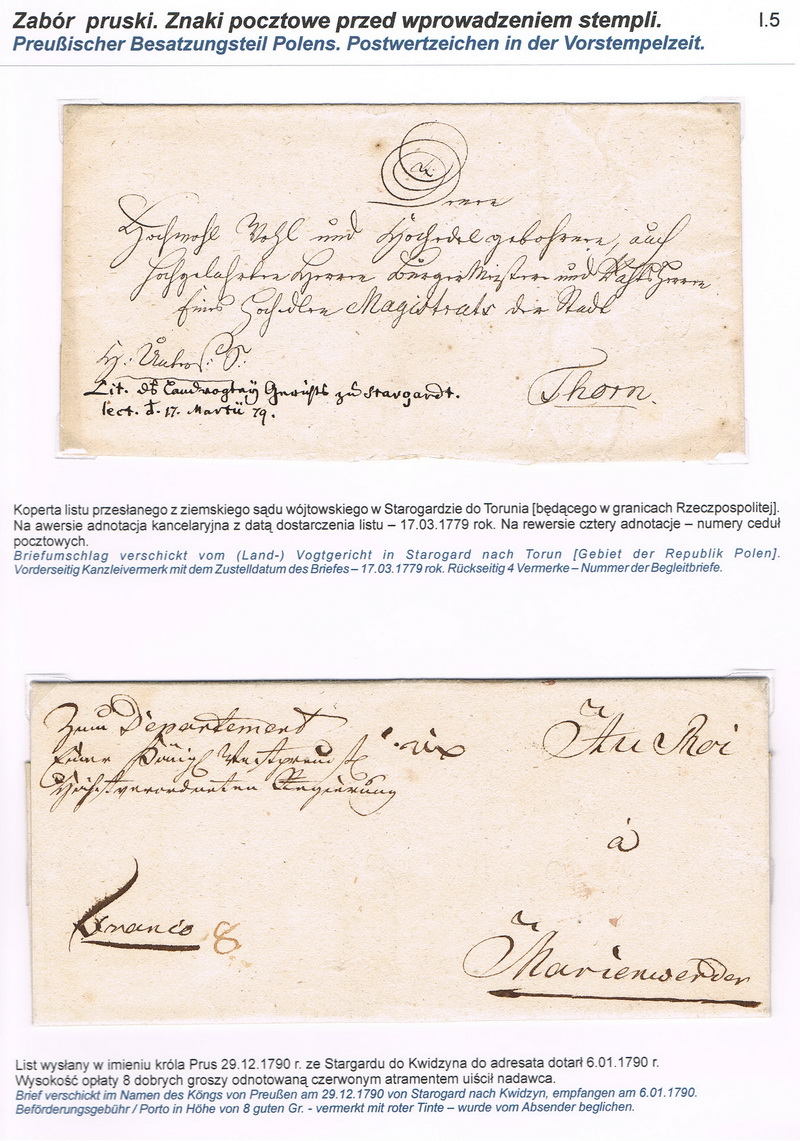 Zabór pruski. Znaki pocztowe przed wprowadzeniem stempli.
I.5
Preußischer Besatzungsteil Polens. Postwertzeichen in der Vorstempelzeit.
Hochwohl Wohl und Hochedelgebohrene, auch
Hochgelahrten Herren BürgerMeistere und RathsHerren
Eines Hochedlen Magistrats der Stadt
Thorn.
Lit. des Landvogtey Gerichts zu Stargardt.
lect. d. 17. Martii 79.
Koperta listu przesłanego z ziemskiego sądu wójtowskiego w Starogardzie do Torunia [będącego w granicach Rzeczpospolitej].
Na awersie adnotacja kancelaryjna z datą dostarczenia listu – 17.03.1779 rok. Na rewersie cztery adnotacje – numery ceduł
pocztowych.
Briefumschlag verschickt vom (Land-) Vogtgericht in Starogard nach Torun [Gebiet der Republik Polen].
Vorderseitig Kanzleivermerk mit dem Zustelldatum des Briefes – 17.03.1779 rok. Rückseitig 4 Vermerke – Nummer der Begleitbriefe.
Zum Departement
Einer Königl Westpreuß
Höchstverordneten Regierung
Au Roi
à
Marienwerder
Franco 8
List wysłany w imieniu króla Prus 29.12.1790 r. ze Stargardu do Kwidzyna do adresata dotarł 6.01.1790 r.
Wysokość opłaty 8 dobrych groszy odnotowaną czerwonym atramentem uiścił nadawca.
Brief verschickt im Namen des Köngs von Preußen am 29.12.1790 von Starogard nach Kwidzyn, empfangen am 6.01.1790.
Beförderungsgebühr / Porto in Höhe von 8 guten Gr. - vermerkt mit roter Tinte – wurde vom Absender beglichen.